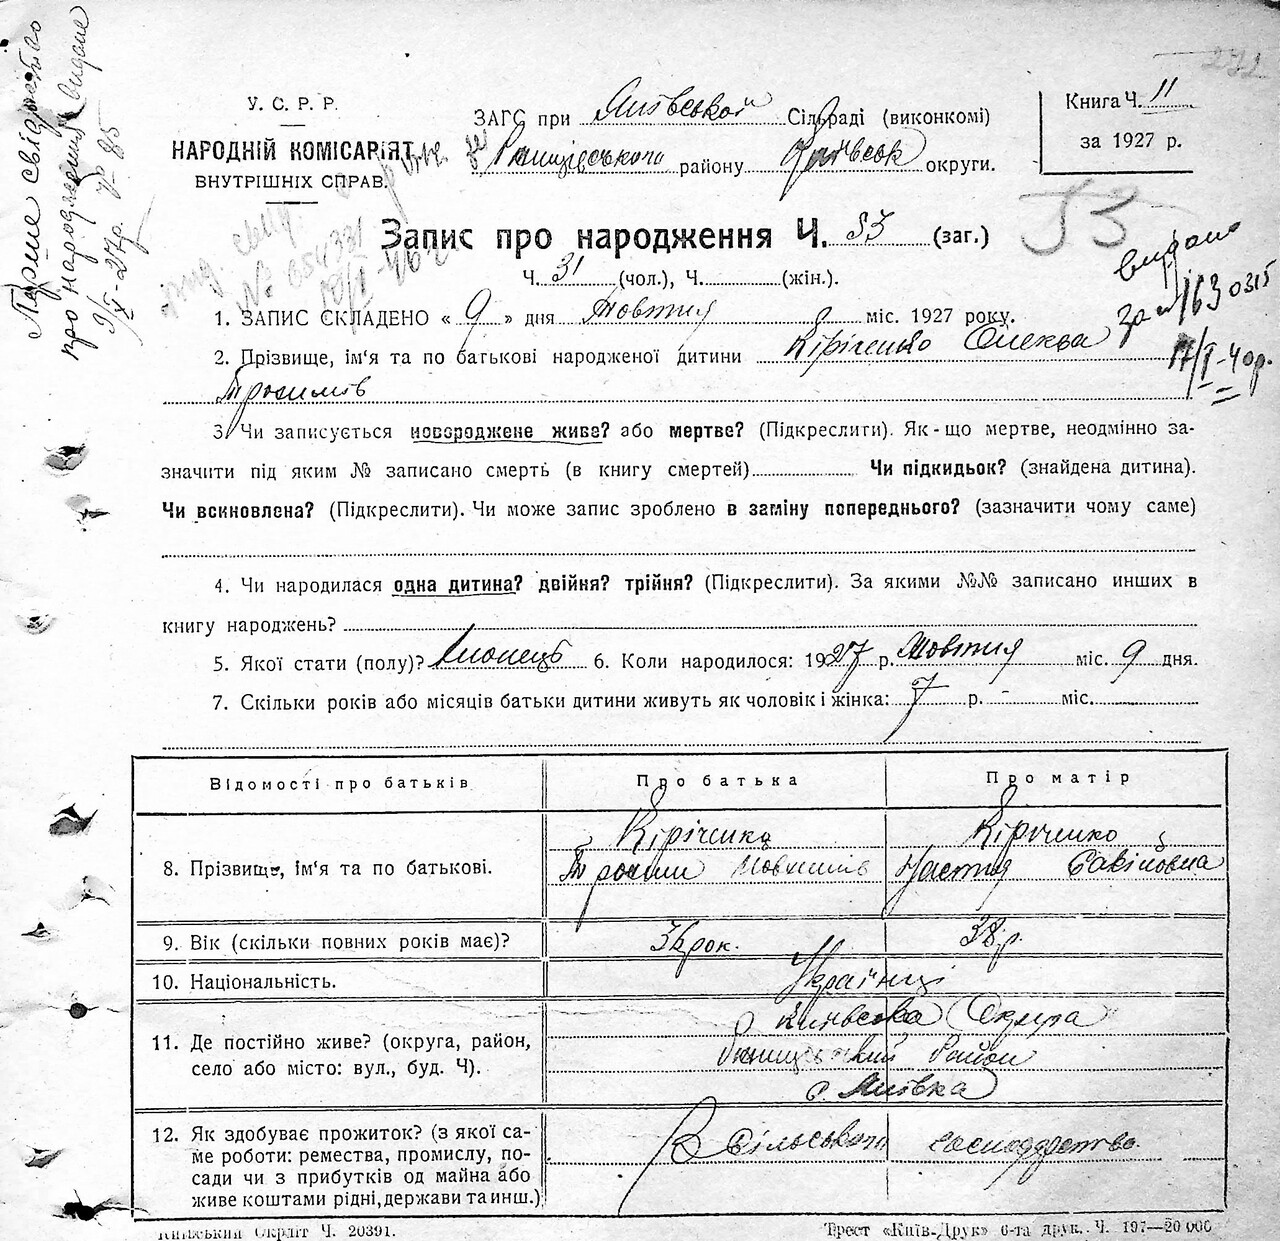 272
Перше свідоцтво
про народження видане
9/X-27р. Ч 85
У. С. Р. Р.
НАРОДНІЙ КОМІСАРІЯТ
ВНУТРІШНІХ СПРАВ.
ЗАГС при Сільраді (виконкомі)
району округи.
Книга Ч. 11
за 1927 р.
53
видано
163
17/I-40р.
№ 654331
Запис про народження Ч. 53 (заг.)
Ч. 31 (чол.), Ч. (жін.).
1. ЗАПИС СКЛАДЕНО « 9 » дня Жовтня міс. 1927 року.
2. Прізвище, ім'я та по батькові народженої дитини Кіріченко Олекса
Трохимів
3. Чи записується новороджене живе? або мертве? (Підкреслити). Як-що мертве, неодмінно за-
значити під яким № записано смерть (в книгу смертей) Чи підкидьок? (знайдена дитина).
Чи всиновлена? (Підкреслити). Чи може запис зроблено в заміну попереднього? (зазначити чому саме)
4. Чи народилася одна дитина? двійня? трійня? (Підкреслити). За якими №№ записано инших в
книгу народжень?
5. Якої стати (полу)? Хлопець 6. Коли народилося: 1927 р. Жовтня міс. 9 дня.
7. Скільки років або місяців батьки дитини живуть як чоловік і жінка: 7 р. - міс.
Відомості про батьків Про батька Про матір
8. Прізвище, ім'я та по батькові. Кіріченко Кіріченко
Трохим Настя Савіновна
9. Вік (скільки повних років має)? 36 рок. 38 р.
10. Національність. Українці
11. Де постійно живе? (округа, район,
село або місто: вул., буд. Ч). Київська Округа
Район
12. Як здобуває прожиток? (з якої са-
ме роботи: ремества, промислу, по-
сади чи з прибутків од майна або
живе коштами рідні, держави та инш.) З Сільського господарства
Київський Окрліт Ч. 20391. Трест «Київ-Друк» 6-та друк. Ч. 197—20 000